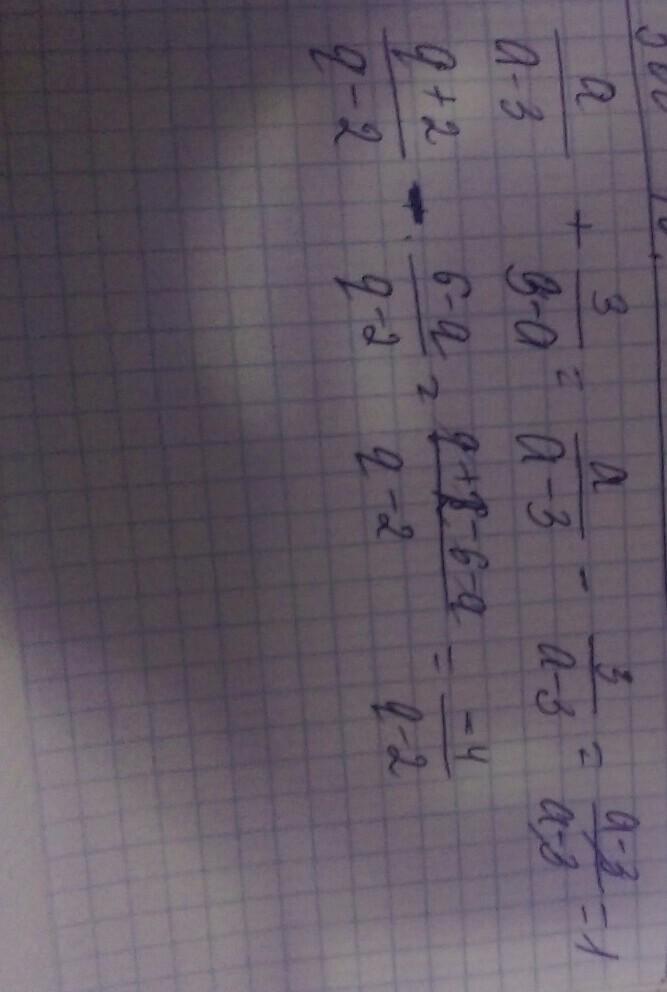 a/(a-3) + 3/(3-a) = a/(a-3) - 3/(a-3) = (a-3)/(a-3) = 1
(q+2)/(q-2) - (6-q)/(q-2) = (q+2-6-q)/(q-2) = -4/(q-2)